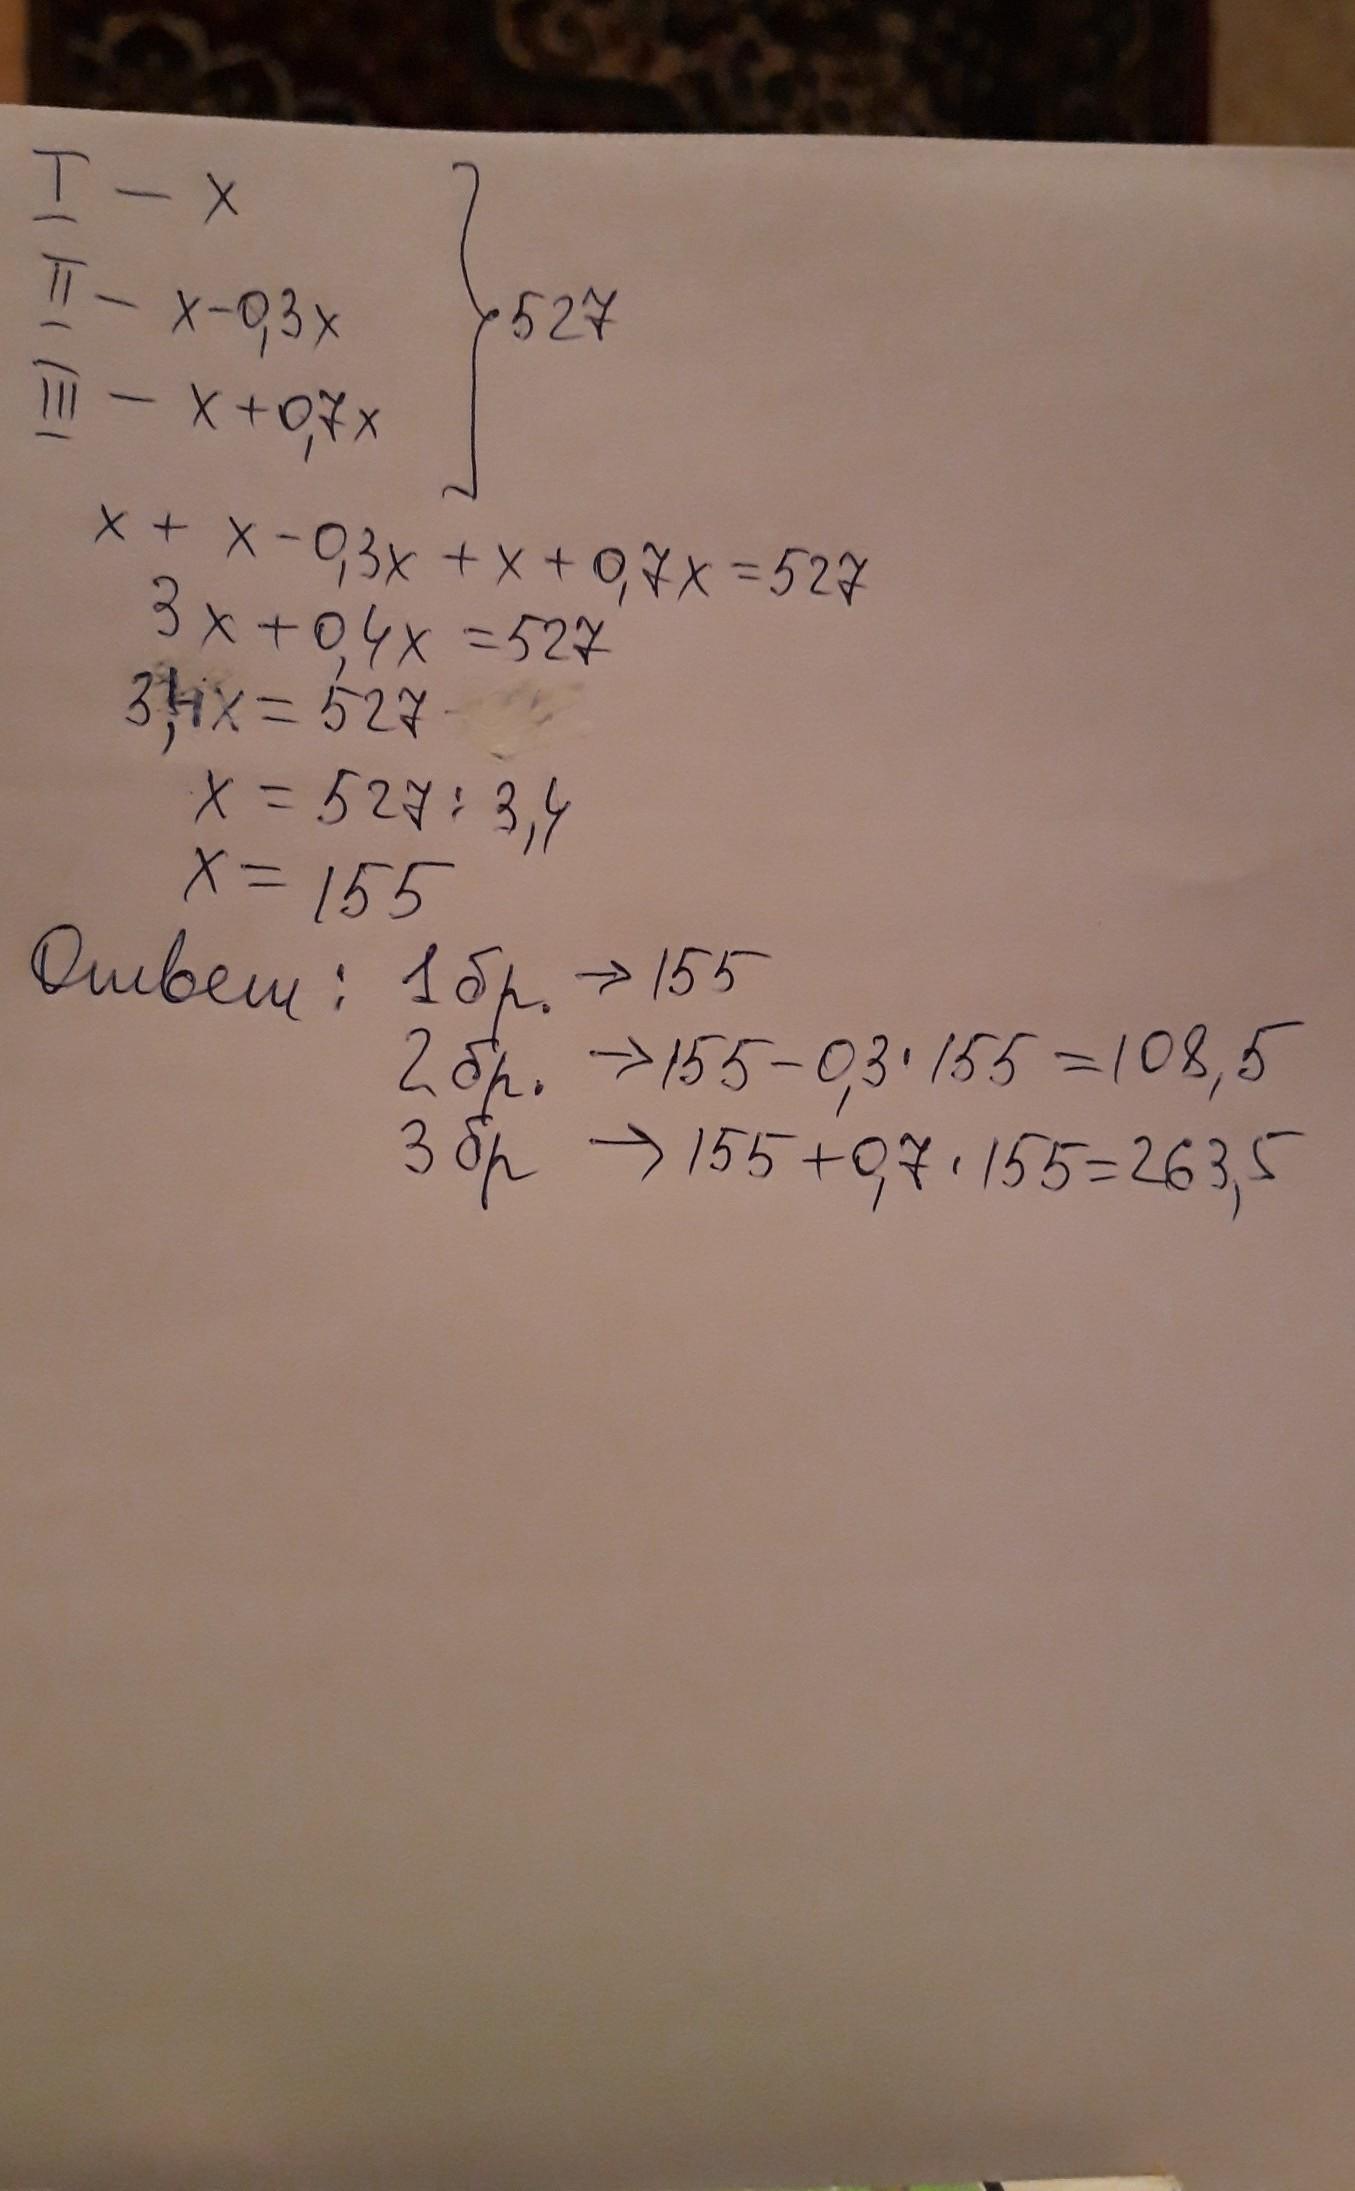 I – x
II – x-0,3x } 527
III – x+0,7x
x + x-0,3x + x + 0,7x = 527
3x + 0,4x = 527
3,4x = 527
x = 527 : 3,4
x = 155
Ответ: 1 бр. → 155
2 бр. → 155-0,3·155 = 108,5
3 бр → 155+0,7·155=263,5